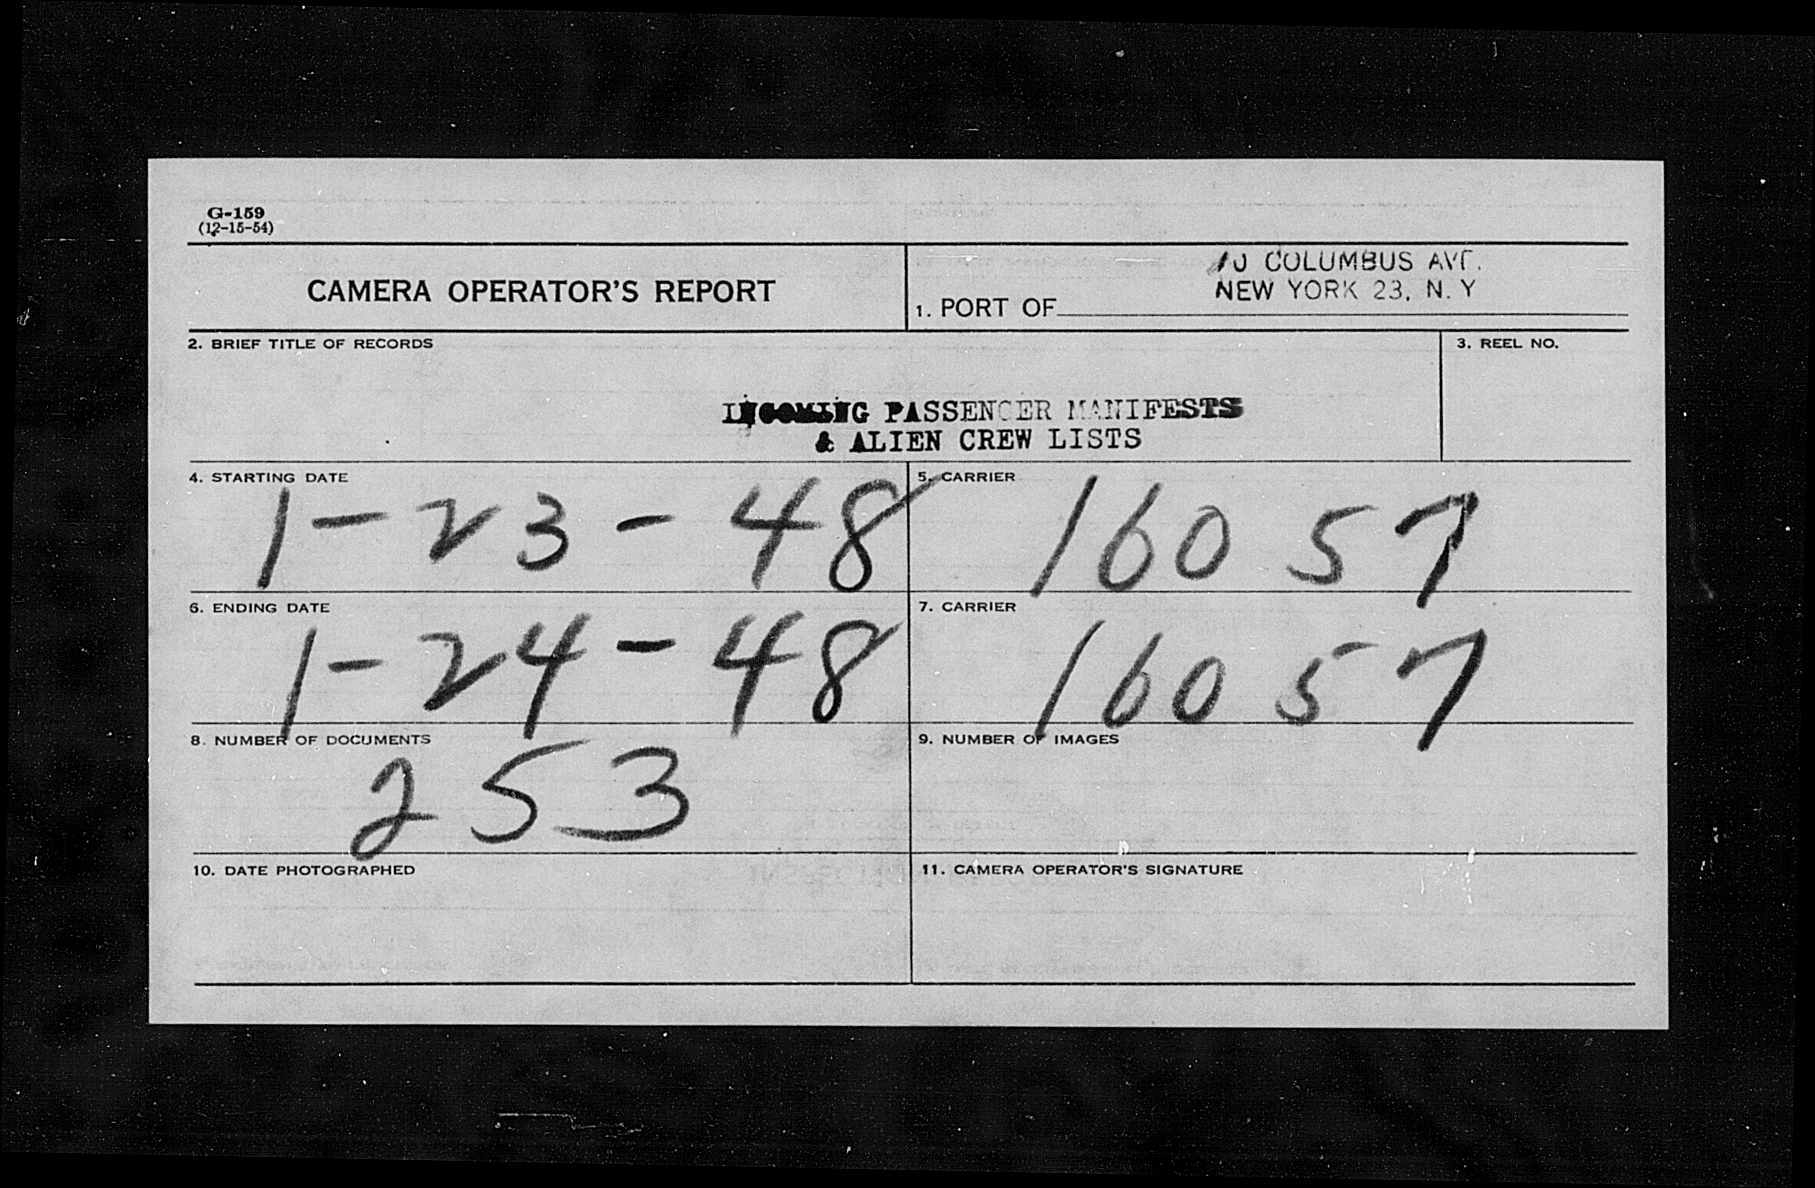 G-159
(12-15-54)
CAMERA OPERATOR'S REPORT
COLUMBUS AVE.
NEW YORK 23, N.Y
1. PORT OF
2. BRIEF TITLE OF RECORDS
3. REEL NO.
INCOMING PASSENGER MANIFESTS
& ALIEN CREW LISTS
4. STARTING DATE
1-23-48
5. CARRIER
16057
6. ENDING DATE
1-24-48
7. CARRIER
16057
8. NUMBER OF DOCUMENTS
253
9. NUMBER OF IMAGES
10. DATE PHOTOGRAPHED
11. CAMERA OPERATOR'S SIGNATURE